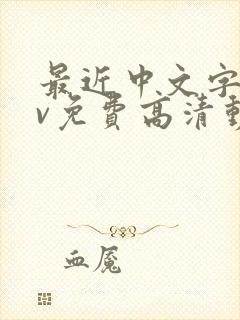 最近中文字
v免费高清動
血魇